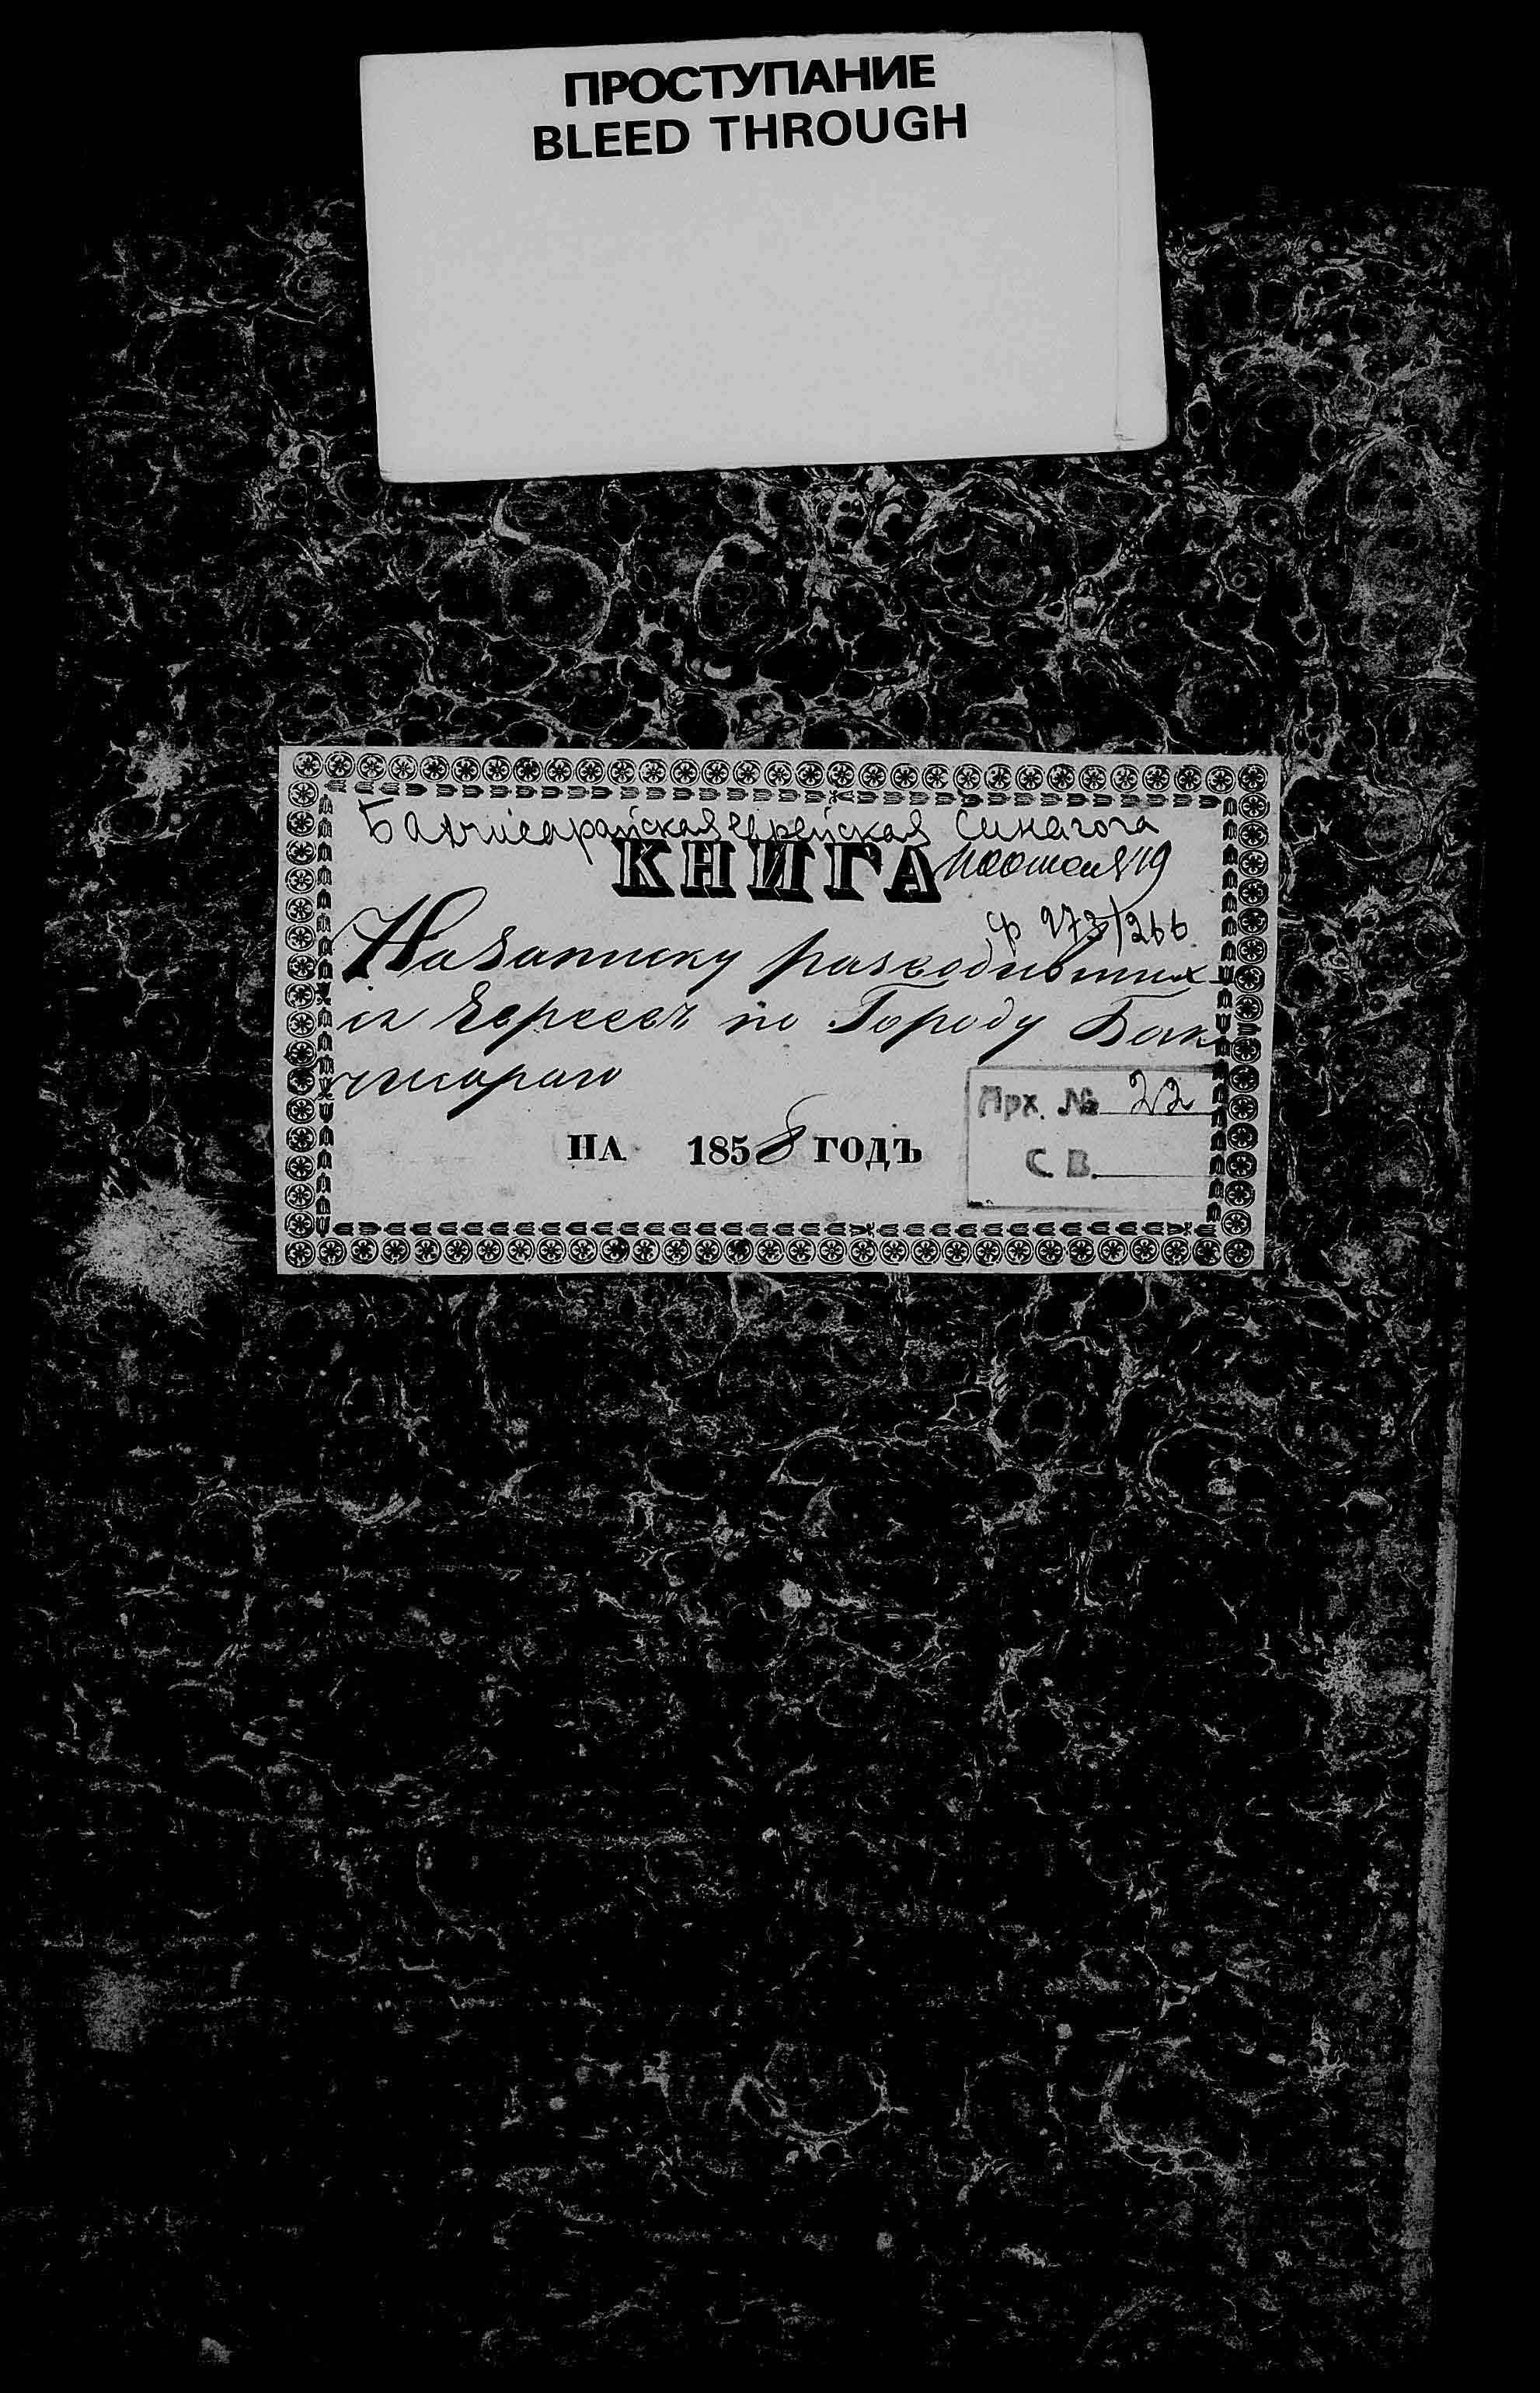 ПРОСТУПАНИЕ
BLEED THROUGH
Бахчисарайская еврейская синагога
КНИГА
ф 273/266
На записку разводивших
ся Евреевъ по Городу Бах
чисараю
НА 1858 ГОДЪ
Арх. № 22
С. В.